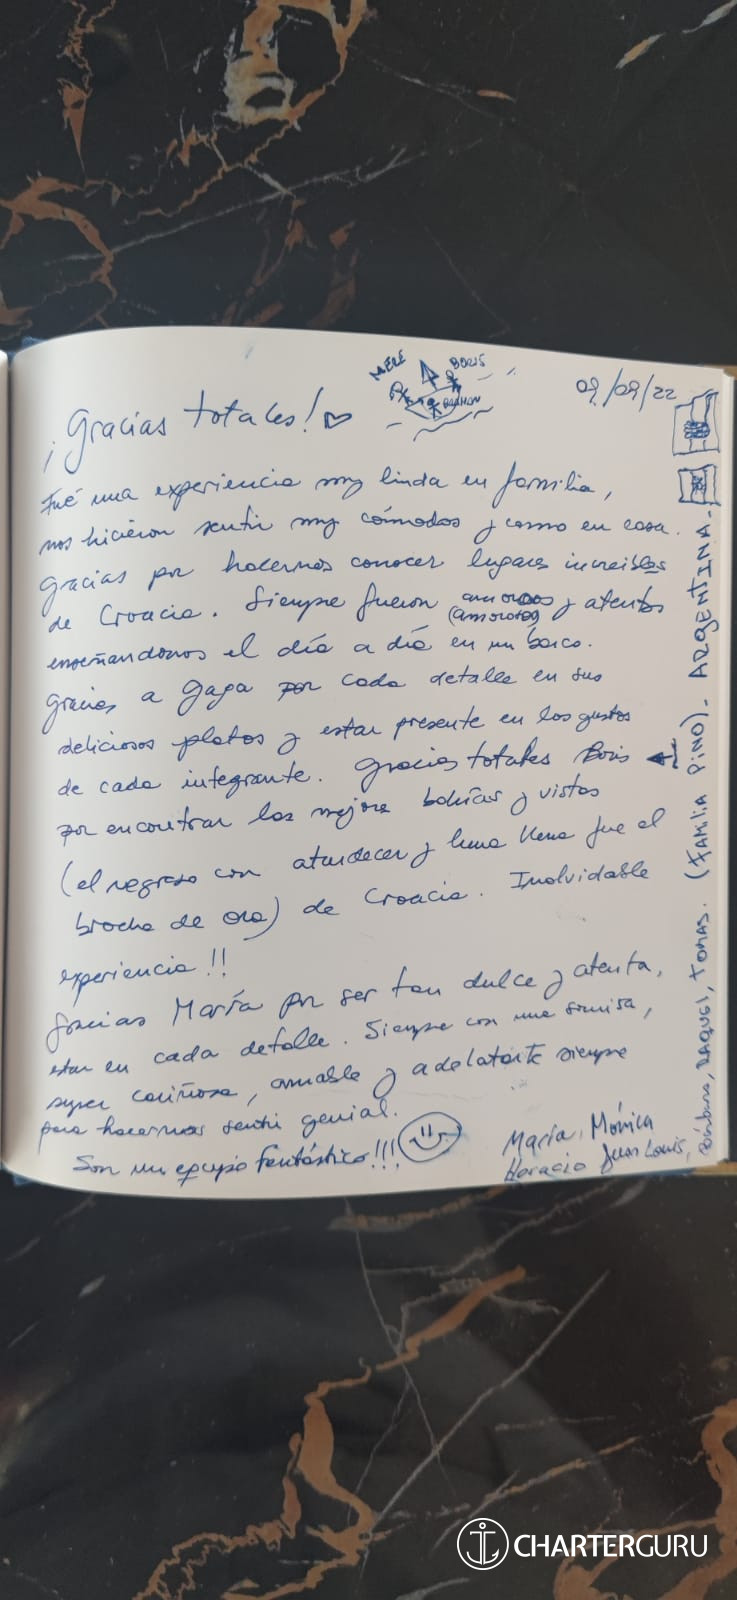 MERE BORIS
09/09/22
¡Gracias totales!
Fué una experiencia muy linda en familia,
nos hicieron sentir muy cómodos y como en casa.
Gracias por hacernos conocer lugares increibles
de Croacia. Siempre fueron amorosos y atentos
(amorosos)
enseñandonos el día a día en un barco.
Gracias a Gaga por cada detalle en sus
deliciosos platos y estar presente en los gustos
de cada integrante. Gracias totales Boris
por encontrar las mejores bahías y vistas
(el regreso con atardecer y luna llena fue el
broche de oro) de Croacia. Inolvidable
experiencia!!
Gracias María por ser tan dulce y atenta,
estar en cada detalle. Siempre con una sonrisa,
super cariñosa, amable y adelatarte siempre
para hacernos sentir genial.
Son un equipo fantástico!!!
María, Mónica
Horacio Juan Louis,
Bárbara, RAQUEL, TOMAS. (FAMILIA PINO). ARGENTINA.
CHARTERGURU